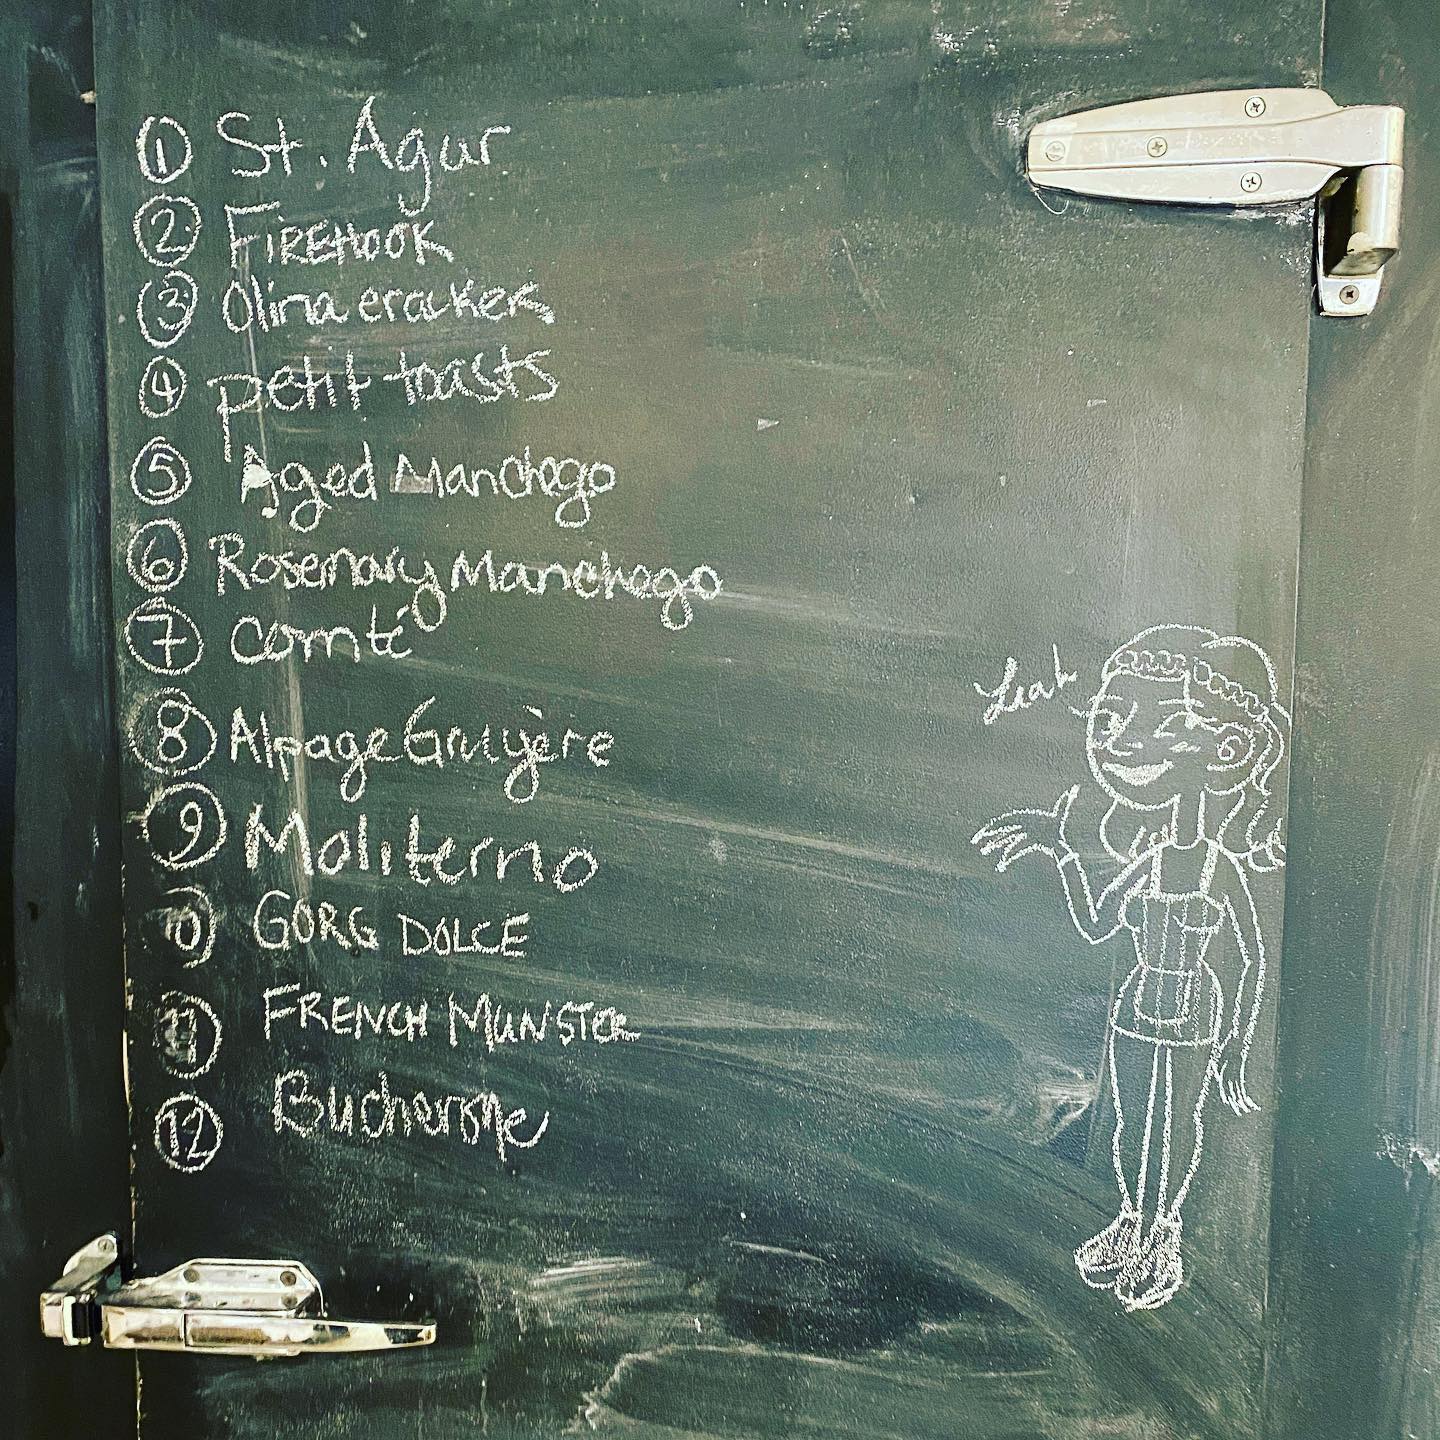 1 St. Agur
2 FIREHOOK
3 Olina crackers
4 petit toasts
5 Aged Manchego
6 Rosemary Manchego
7 Comté
8 Alpage Gruyère
9 Moliterno
10 GORG DOLCE
11 FRENCH MUNSTER
12
Leah